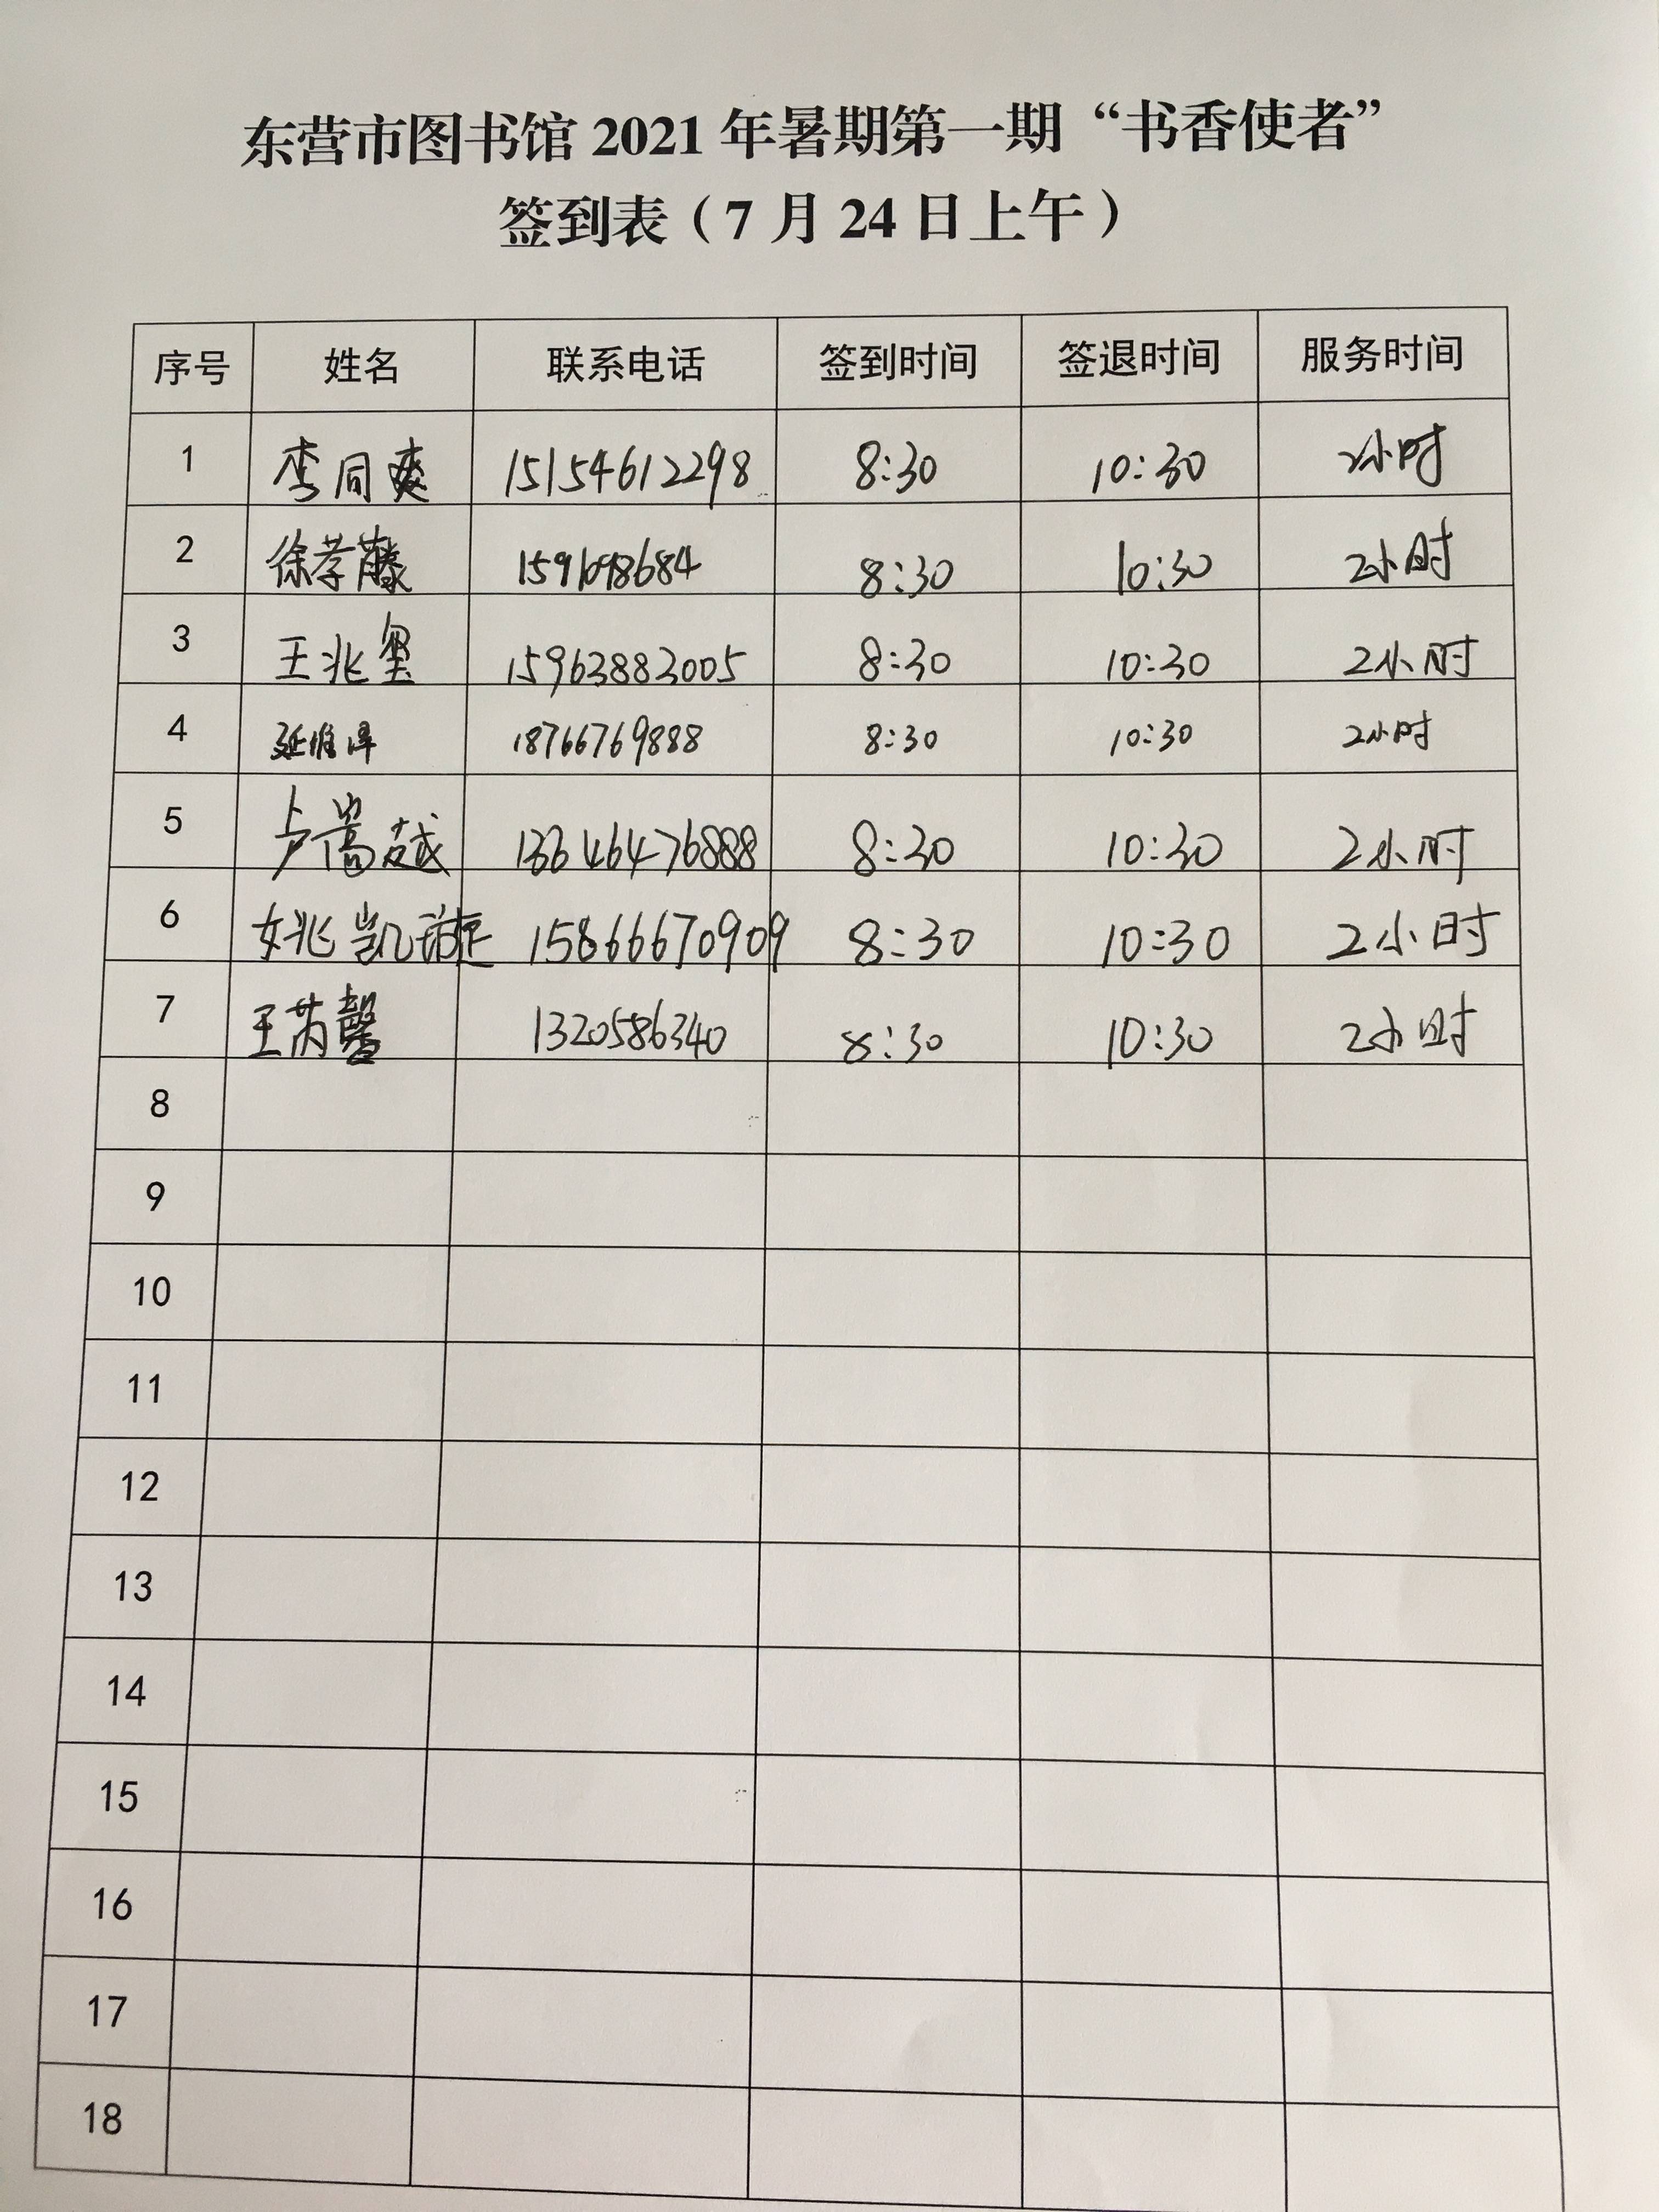 东营市图书馆 2021 年暑期第一期“书香使者”
签到表（7 月 24 日上午）
序号 姓名 联系电话 签到时间 签退时间 服务时间
1 李同爽 15154612298 8:30 10:30 2小时
2 徐孝藤 8:30 10:30 2小时
3 王兆玺 15963883005 8:30 10:30 2小时
4 18766769888 8:30 10:30 2小时
5 卢嵩越 13646476888 8:30 10:30 2小时
6 姚凯 15866670909 8:30 10:30 2小时
7 王芮馨 1320586340 8:30 10:30 2小时
8
9
10
11
12
13
14
15
16
17
18